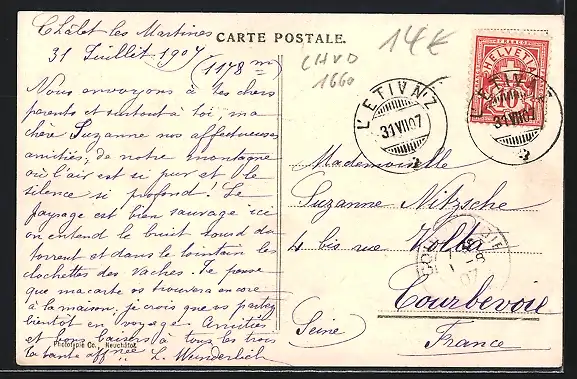 Châlet les Martines
31 Juillet 1907
(1178 m)
Nous envoyons à tes chers
parents et surtout à toi, ma
chère Suzanne nos affectueuses
amitiés, de notre montagne
où l'air est si pur et le
silence si profond! Le
paysage est bien sauvage ici
on entend le bruit sourd du
torrent et dans le lointain les
clochettes des vaches. Je pense
que ma carte vs trouvera encore
à la maison, je crois que vs partez
bientôt en voyage. Amitiés
et bons baisers à tous les trois
ta tante affnée L. Wunderlich
Phototypie Co., Neuchâtel
CARTE POSTALE.
14€
CHVD
1660
L'ETIVAZ
31 VII 07
HELVETIA
10
L'ETIVAZ
31 VII 07
Mademoiselle
Suzanne Nitzsche
4 bis rue Volta
Courbevoie
Seine
France